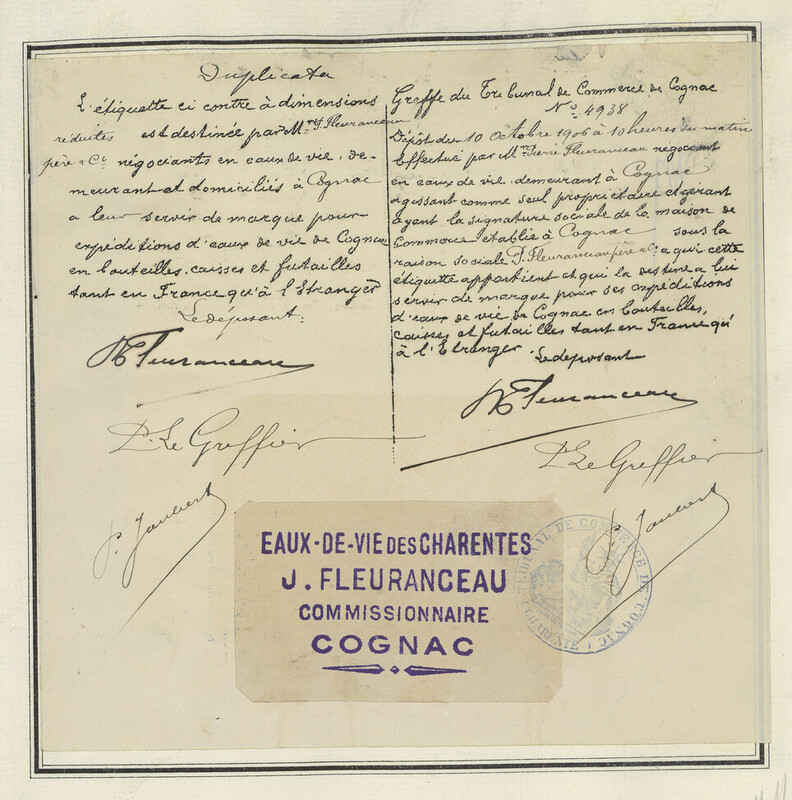 Duplicata
L'étiquette ci contre à dimensions
réduites est destinée par Mrs J. Fleuranceau
père & Cie négociants en eaux de vie, de-
meurant et domiciliés à Cognac
a leur servir de marque pour
expéditions d'eaux de vie de Cognac
en bouteilles, caisses et futailles
tant en France qu'à l'Etranger
Le déposant:
Fleuranceau
P. Le Greffier
P. Joubert
Greffe du Tribunal de Commerce de Cognac
No 4938
Dépôt du 10 Octobre 1906 à 10 heures du matin
Effectué par Mr Pierre Fleuranceau négociant
en eaux de vie demeurant à Cognac
agissant comme seul propriétaire et gérant
ayant la signature sociale de la maison de
Commerce établie à Cognac sous la
raison sociale J. Fleuranceau père & Cie a qui cette
étiquette appartient et qui la destine a lui
servir de marque pour ses expéditions
d'eaux de vie de Cognac en bouteilles,
caisses et futailles tant en France qu'
à l'Etranger Le déposant
Fleuranceau
P. Le Greffier
P. Joubert
EAUX-DE-VIE DES CHARENTES
J. FLEURANCEAU
COMMISSIONNAIRE
COGNAC
TRIBUNAL DE COMMERCE DE COGNAC
(CHARENTE)